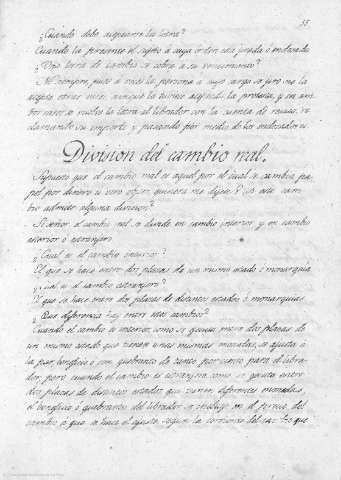 55
¿Cuando debe aceptarse la letra?
Cuando la presente el sujeto à cuya orden está girada ó endosada
¿Una letra de cambio se cobra a su vencimiento?
si; siempre, pues à veces la persona a cuyo cargo se giró no la
acepta otras veces, aunque la hubiese aceptado la protesta, y en am-
bos casos se vuelve la letra al librador con la cuenta de resaca, re-
clamando su importe y pasando por medio de los endosadores
Division del cambio real.
Supuesto que el cambio real es aquel por el cual se cambia pa-
pel por dinero ú otro papel, quisiera me dijera: si este cam-
bio admite alguna division?
Si señor el cambio real se divide en cambio interior y en cambio
exterior ó estrangero
¿Cual es el cambio interior?
El que se hace entre dos plazas de un mismo estado ó monarquia
¿Cual es el cambio estrangero?
El que se hace entre dos plazas de distintos estados ó monarquias
¿Que diferencia hay entre estos cambios?
Cuando el cambio es interior, como se gira entre dos plazas de
un mismo estado que tienen unas mismas monedas, se ajusta a
la par, beneficio ó con quebranto de tanto por ciento para el libra-
dor, pero cuando el cambio es estrangero, como se gira entre
dos plazas de distintos estados que tienen diferentes monedas,
el beneficio ó quebranto del librador se incluye en el precio del
cambio à que se hace el ajuste, segun la corriente del